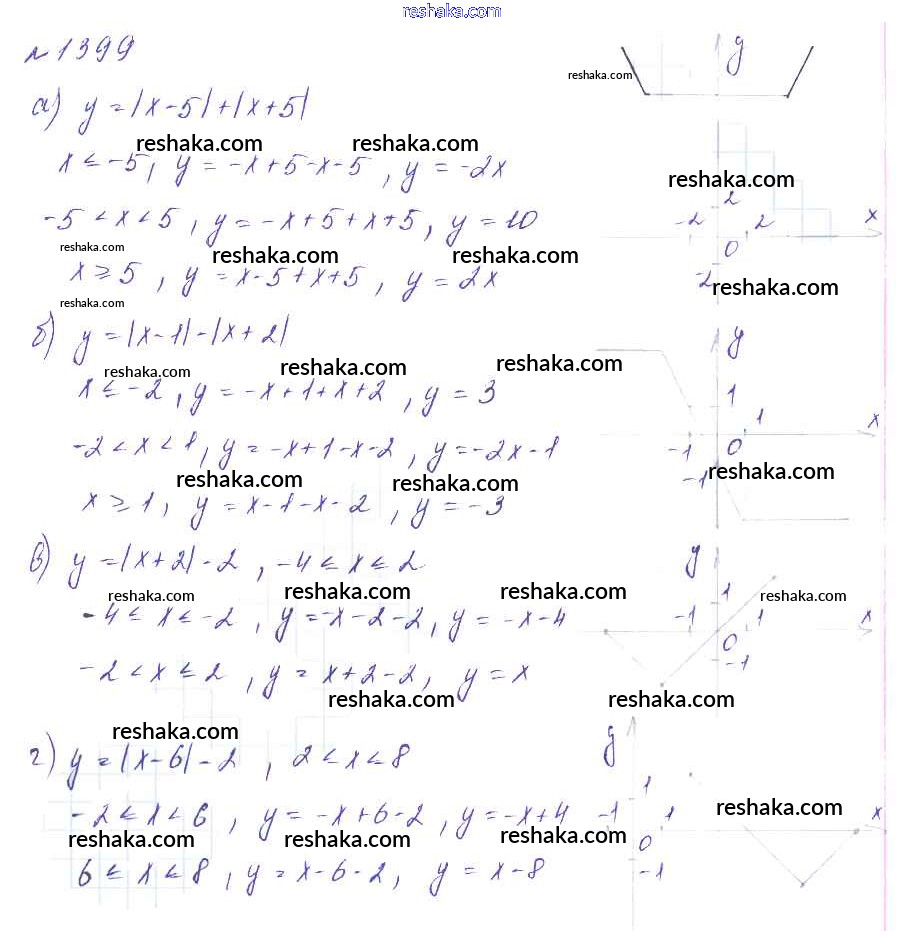 reshaka.com
№1399
а) y = |x-5|+|x+5|
reshaka.com reshaka.com
x ≤ -5, y = -x+5-x-5, y = -2x
-5 < x < 5, y = -x+5+x+5, y = 10
reshaka.com reshaka.com reshaka.com
x ≥ 5, y = x-5+x+5, y = 2x
reshaka.com
y
reshaka.com
reshaka.com
2
-2 2 x
0
-2
reshaka.com
б) y = |x-1|-|x+2|
reshaka.com reshaka.com reshaka.com
x ≤ -2, y = -x+1+x+2, y = 3
-2 < x < 1, y = -x+1-x-2, y = -2x-1
reshaka.com reshaka.com
x ≥ 1, y = x-1-x-2, y = -3
y
1
1 x
-1 0
-1
reshaka.com
в) y = |x+2|-2, -4 ≤ x ≤ 2
reshaka.com reshaka.com reshaka.com
-4 ≤ x ≤ -2, y = -x-2-2, y = -x-4
-2 < x ≤ 2, y = x+2-2, y = x
reshaka.com reshaka.com
y
1 reshaka.com
-1 1 x
0
-1
reshaka.com
г) y = |x-6|-2, 2 < x < 8
-2 ≤ x < 6, y = -x+6-2, y = -x+4
reshaka.com reshaka.com reshaka.com
6 ≤ x < 8, y = x-6-2, y = x-8
y
1 reshaka.com
-1 1 x
0
-1